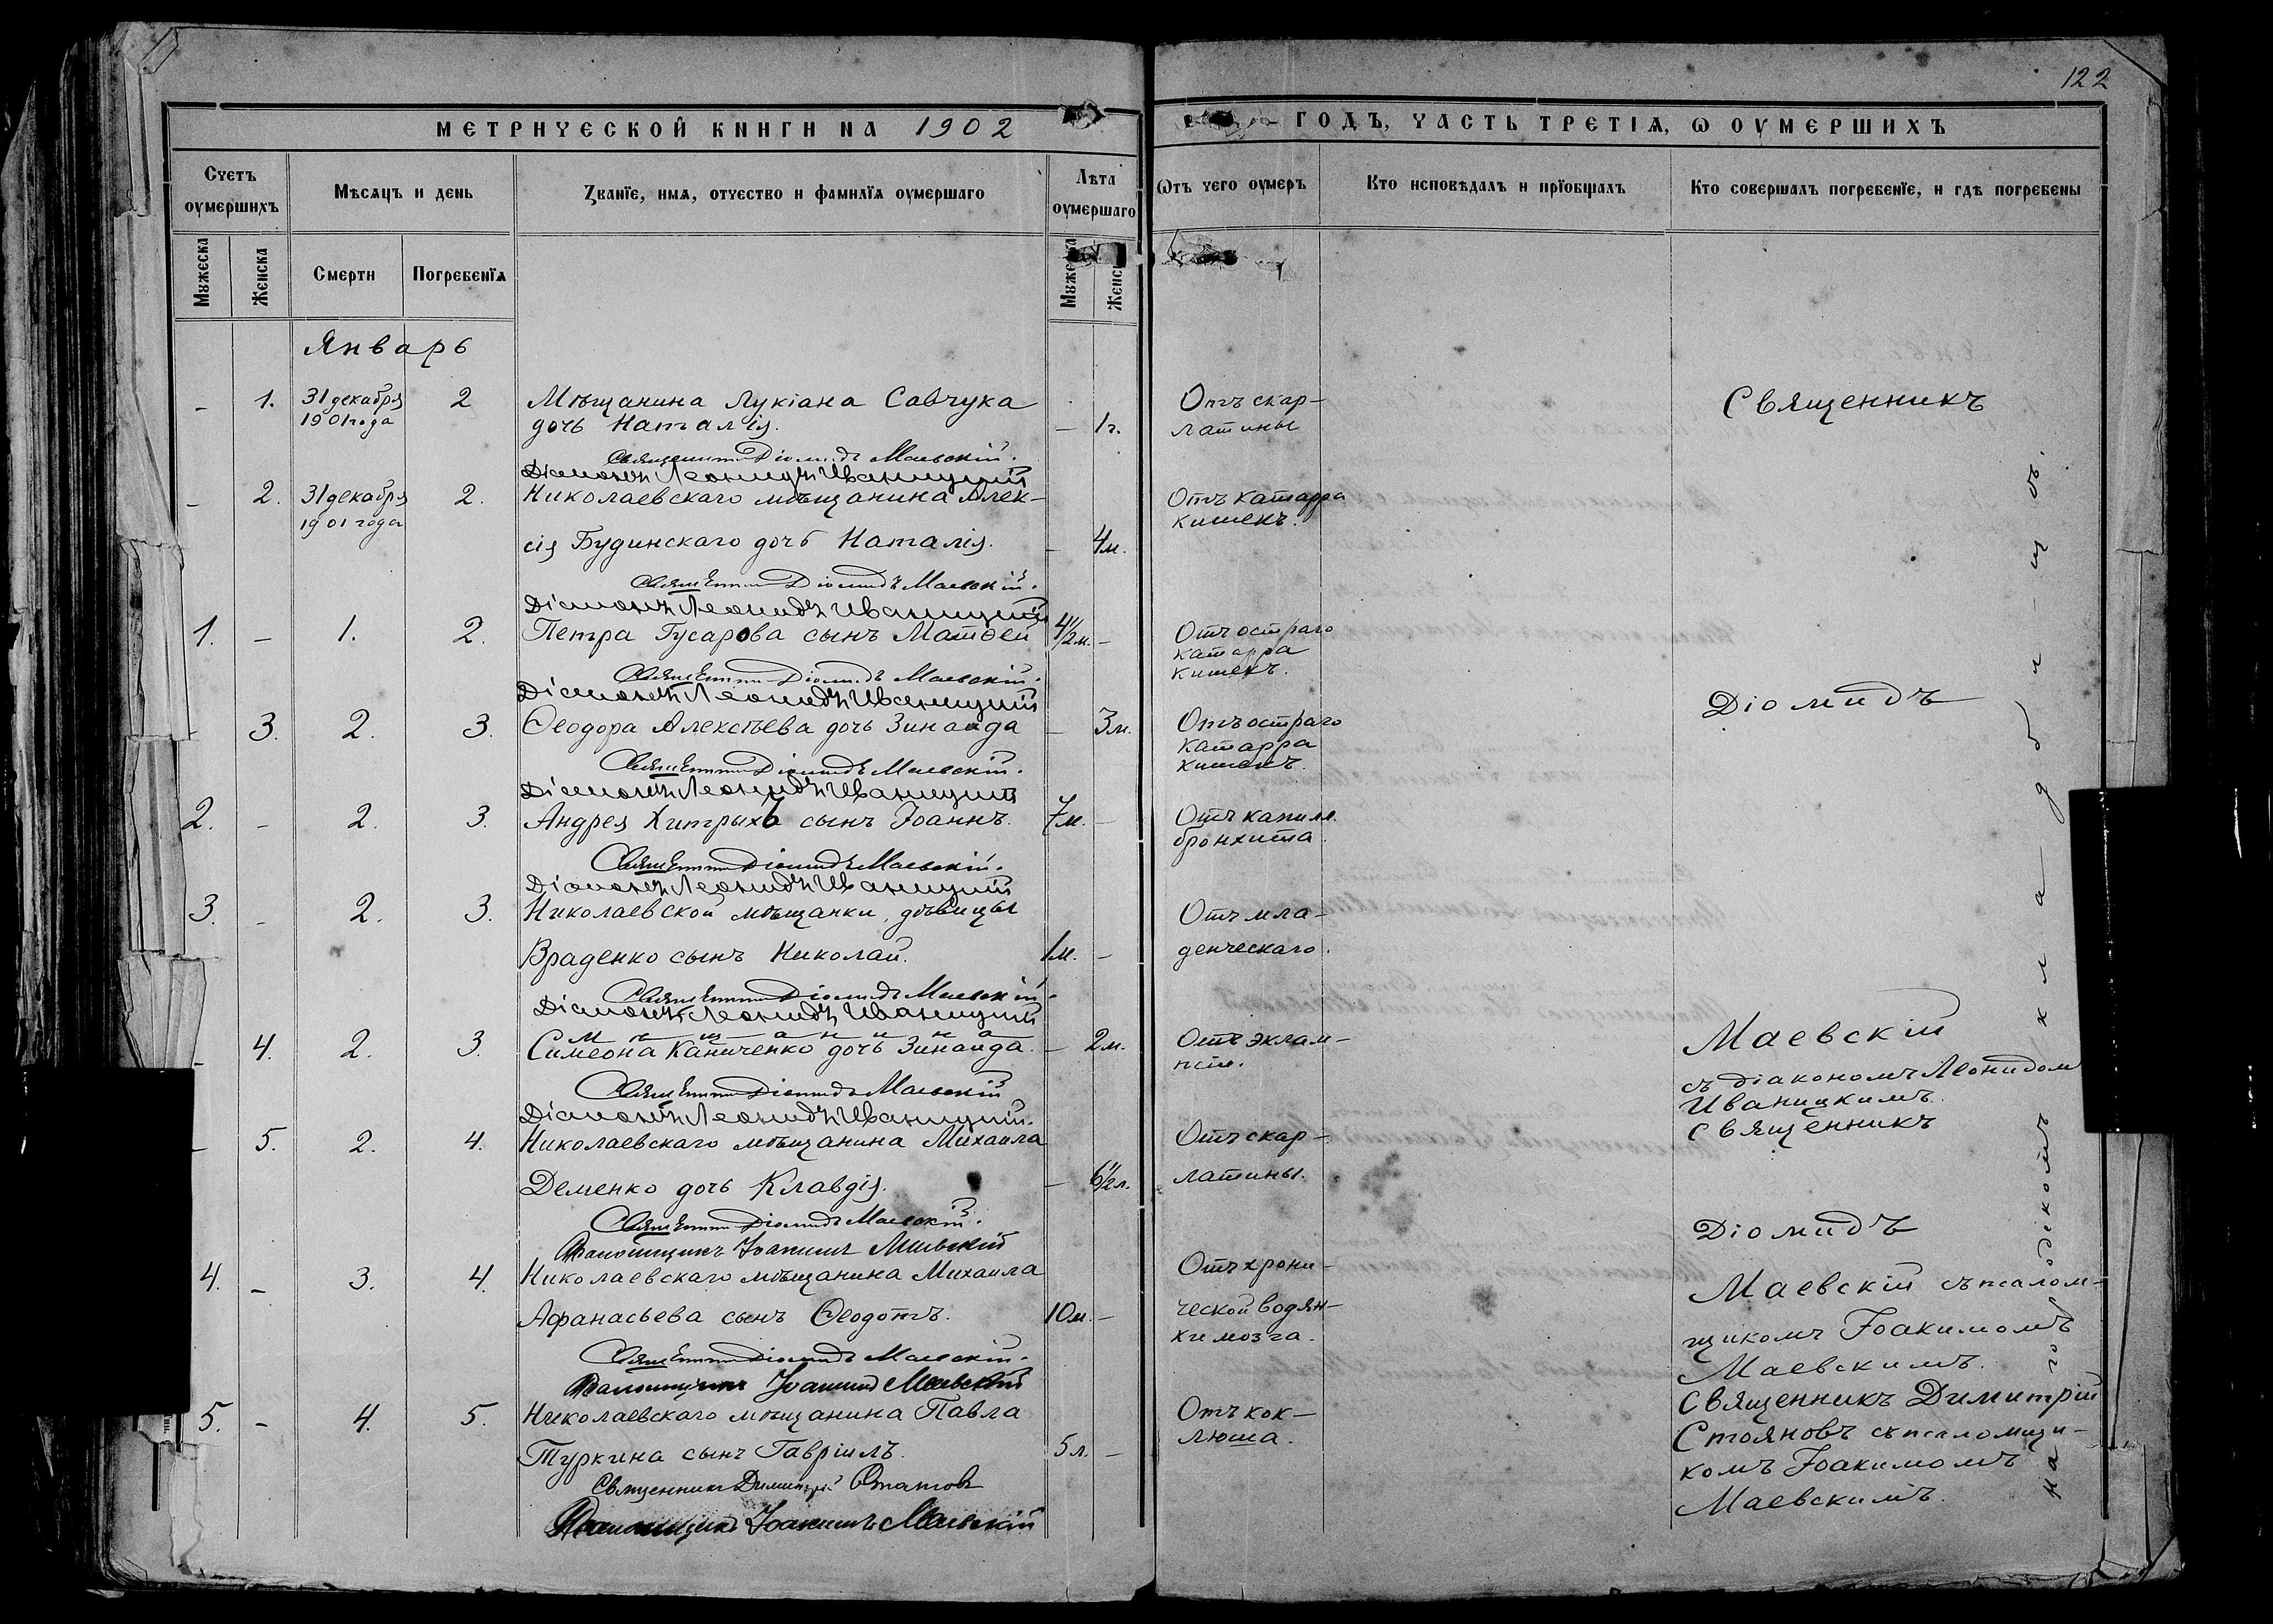 122
МЕТРИЧЕСКОЙ КНИГИ НА 1902
ГОДЪ, ЧАСТЬ ТРЕТІѦ, Ѡ ОУМЕРШИХЪ
Счетъ оумершихъ
Мѣсяцъ и день
Званїе, имѧ, отчество и фамилїѧ оумершаго
Лѣта оумершаго
Ѡтъ чего оумеръ
Кто исповѣдалъ и прїобщалъ
Кто совершалъ погребенїе, и гдѣ погребены
Мꙋжеска
Женска
Смерти
Погребенїѧ
Январь
- 1. 31 декабря 2 Мѣщанина Лукіана Савчука Отъ скар-
1901 года дочь Наталія. - 1 г. латины
Священникъ Діомидъ Маевскій.
Діаконъ Леонидъ Иваницкій
- 2. 31 декабря 2. Николаевскаго мѣщанина Алек- Отъ катарра
1901 года кишекъ.
сія Будинскаго дочь Наталія. - 4 м.
Священникъ Діомидъ Маевскій.
Діаконъ Леонидъ Иваницкій
1. - 1. 2. Петра Гусарова сынъ Матѳей 4 1/2 м. - Отъ остраго
катарра
кишекъ.
Священникъ Діомидъ Маевскій.
Діаконъ Леонидъ Иваницкій
- 3. 2. 3. Ѳеодора Алексѣева дочь Зинаида - 3 м. Отъ остраго
катарра
кишекъ.
Священникъ Діомидъ Маевскій.
Діаконъ Леонидъ Иваницкій
2. - 2. 3. Андрея Хитрыхъ сынъ Іоаннъ. 7 м. - Отъ капилл.
бронхита.
Священникъ Діомидъ Маевскій.
Діаконъ Леонидъ Иваницкій
3. - 2. 3. Николаевской мѣщанки, дѣвицы Отъ мла-
Враденко сынъ Николай. 1 м. - денческаго.
Священникъ Діомидъ Маевскій.
Діаконъ Леонидъ Иваницкій
мѣщанина
- 4. 2. 3. Симеона Каниченко дочь Зинаида. - 2 м. Отъ эклам-
псіи.
Священникъ Діомидъ Маевскій
Діаконъ Леонидъ Иваницкій.
- 5. 2. 4. Николаевскаго мѣщанина Михаила Отъ скар-
Деменко дочь Клавдія. - 6 1/2 л. латины.
Священникъ Діомидъ Маевскій.
Псаломщикъ Іоакимъ Маевскій
4. - 3. 4. Николаевскаго мѣщанина Михаила Отъ хрони-
Афанасьева сынъ Ѳеодотъ. 10 м. - ческой водян-
ки мозга.
Священникъ Діомидъ Маевскій.
Псаломщикъ Іоакимъ Маевскій
5. - 4. 5. Николаевскаго мѣщанина Павла Отъ кок-
Туркина сынъ Гавріилъ. 5 л. - люша.
Священникъ Димитрій Стояновъ
Псаломщикъ Іоакимъ Маевскій
Священникъ
Діомидъ
Маевскій
съ діакономъ Леонидом
Иваницкимъ.
Священникъ
Діомидъ
Маевскій съ псалом-
щикомъ Іоакимомъ
Маевскимъ.
Священникъ Димитрій
Стояновъ съ псаломщи-
комъ Іоакимомъ
Маевскимъ.
на городскомъ кладбищѣ.